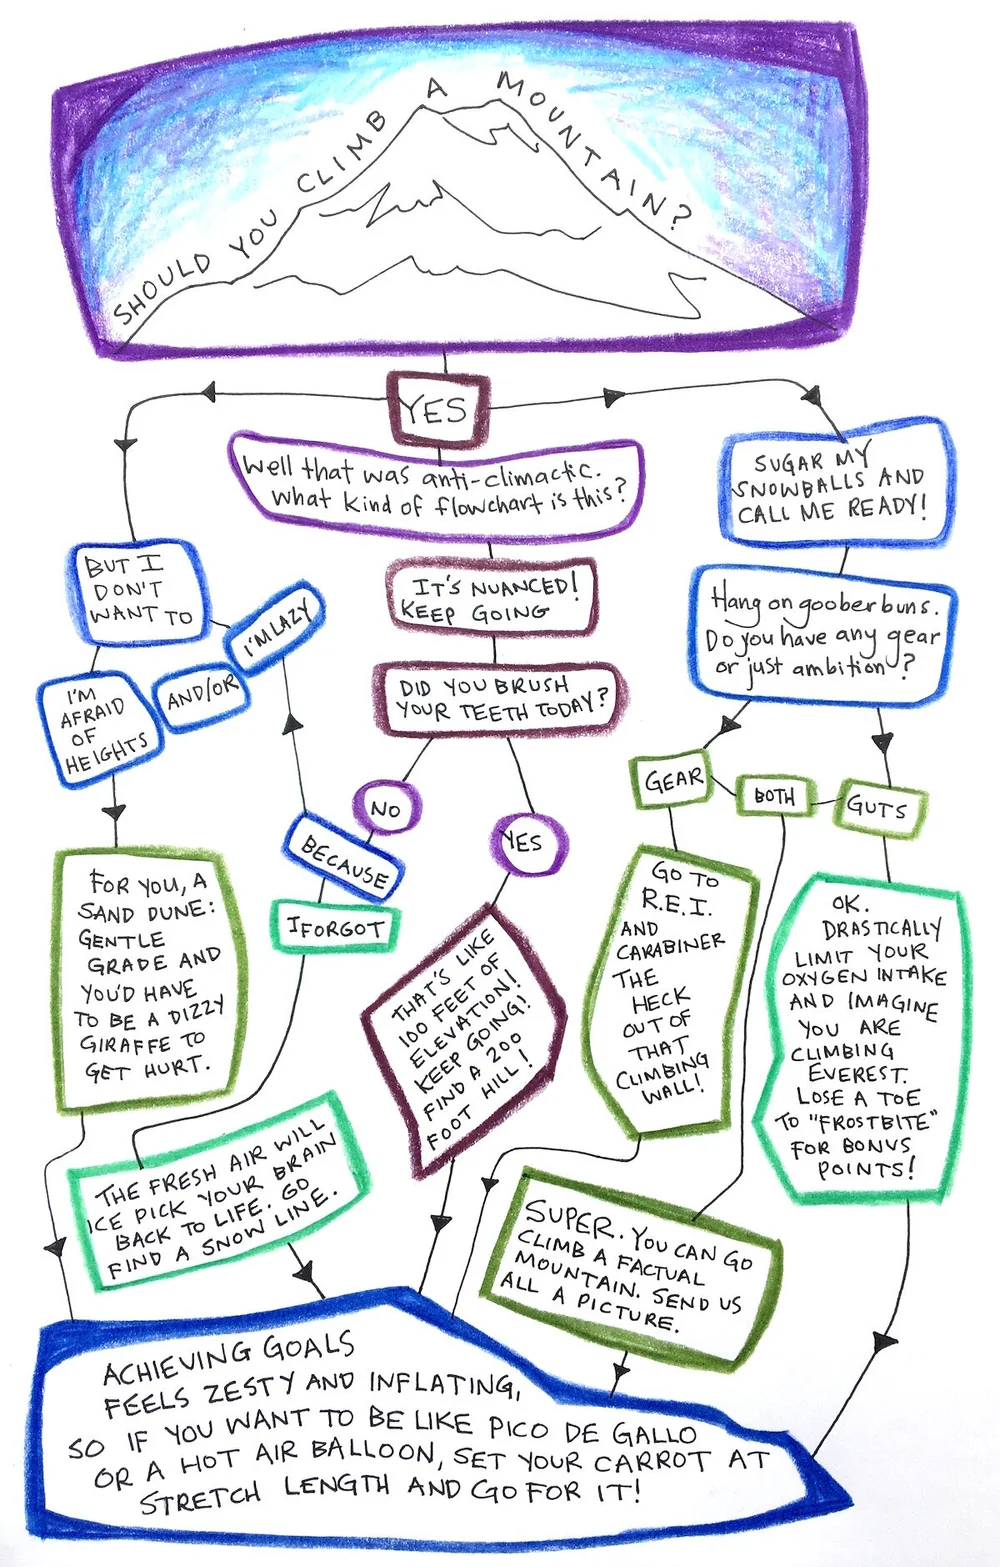 SHOULD YOU CLIMB A MOUNTAIN?
YES
Well that was anti-climactic.
What kind of flowchart is this?
SUGAR MY
SNOWBALLS AND
CALL ME READY!
BUT I
DON'T
WANT TO
I'M LAZY
AND/OR
I'M
AFRAID
OF
HEIGHTS
IT'S NUANCED!
KEEP GOING
Hang on goober buns.
Do you have any gear
or just ambition?
DID YOU BRUSH
YOUR TEETH TODAY?
NO
YES
BECAUSE
I FORGOT
GEAR
BOTH
GUTS
FOR YOU, A
SAND DUNE:
GENTLE
GRADE AND
YOU'D HAVE
TO BE A DIZZY
GIRAFFE TO
GET HURT.
THAT'S LIKE
100 FEET OF
ELEVATION!
KEEP GOING!
FIND A 200
FOOT HILL!
GO TO
R.E.I.
AND
CARABINER
THE
HECK
OUT OF
THAT
CLIMBING
WALL!
OK.
DRASTICALLY
LIMIT YOUR
OXYGEN INTAKE
AND IMAGINE
YOU ARE
CLIMBING
EVEREST.
LOSE A TOE
TO "FROSTBITE"
FOR BONUS
POINTS!
THE FRESH AIR WILL
ICE PICK YOUR BRAIN
BACK TO LIFE. GO
FIND A SNOW LINE.
SUPER. YOU CAN GO
CLIMB A FACTUAL
MOUNTAIN. SEND US
ALL A PICTURE.
ACHIEVING GOALS
FEELS ZESTY AND INFLATING,
SO IF YOU WANT TO BE LIKE PICO DE GALLO
OR A HOT AIR BALLOON, SET YOUR CARROT AT
STRETCH LENGTH AND GO FOR IT!